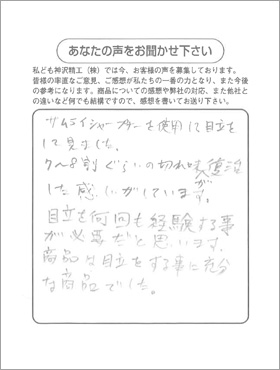 あなたの声をお聞かせ下さい
私ども神沢精工（株）では今、お客様の声を募集しております。
皆様の率直なご意見、ご感想が私たちの一番の力となり、また今後
の参考になります。商品についての感想や弊社の対応、また他社と
の違いなど何でも結構ですので、感想を書いてお送り下さい。
サムライシャープナーを使用して目立を
して見ました。
7〜8割ぐらいの切れ味が復活
した感じがしています。
目立も何回も経験する事
が必要だと思います。
商品は目立をする事に充分
な商品でした。